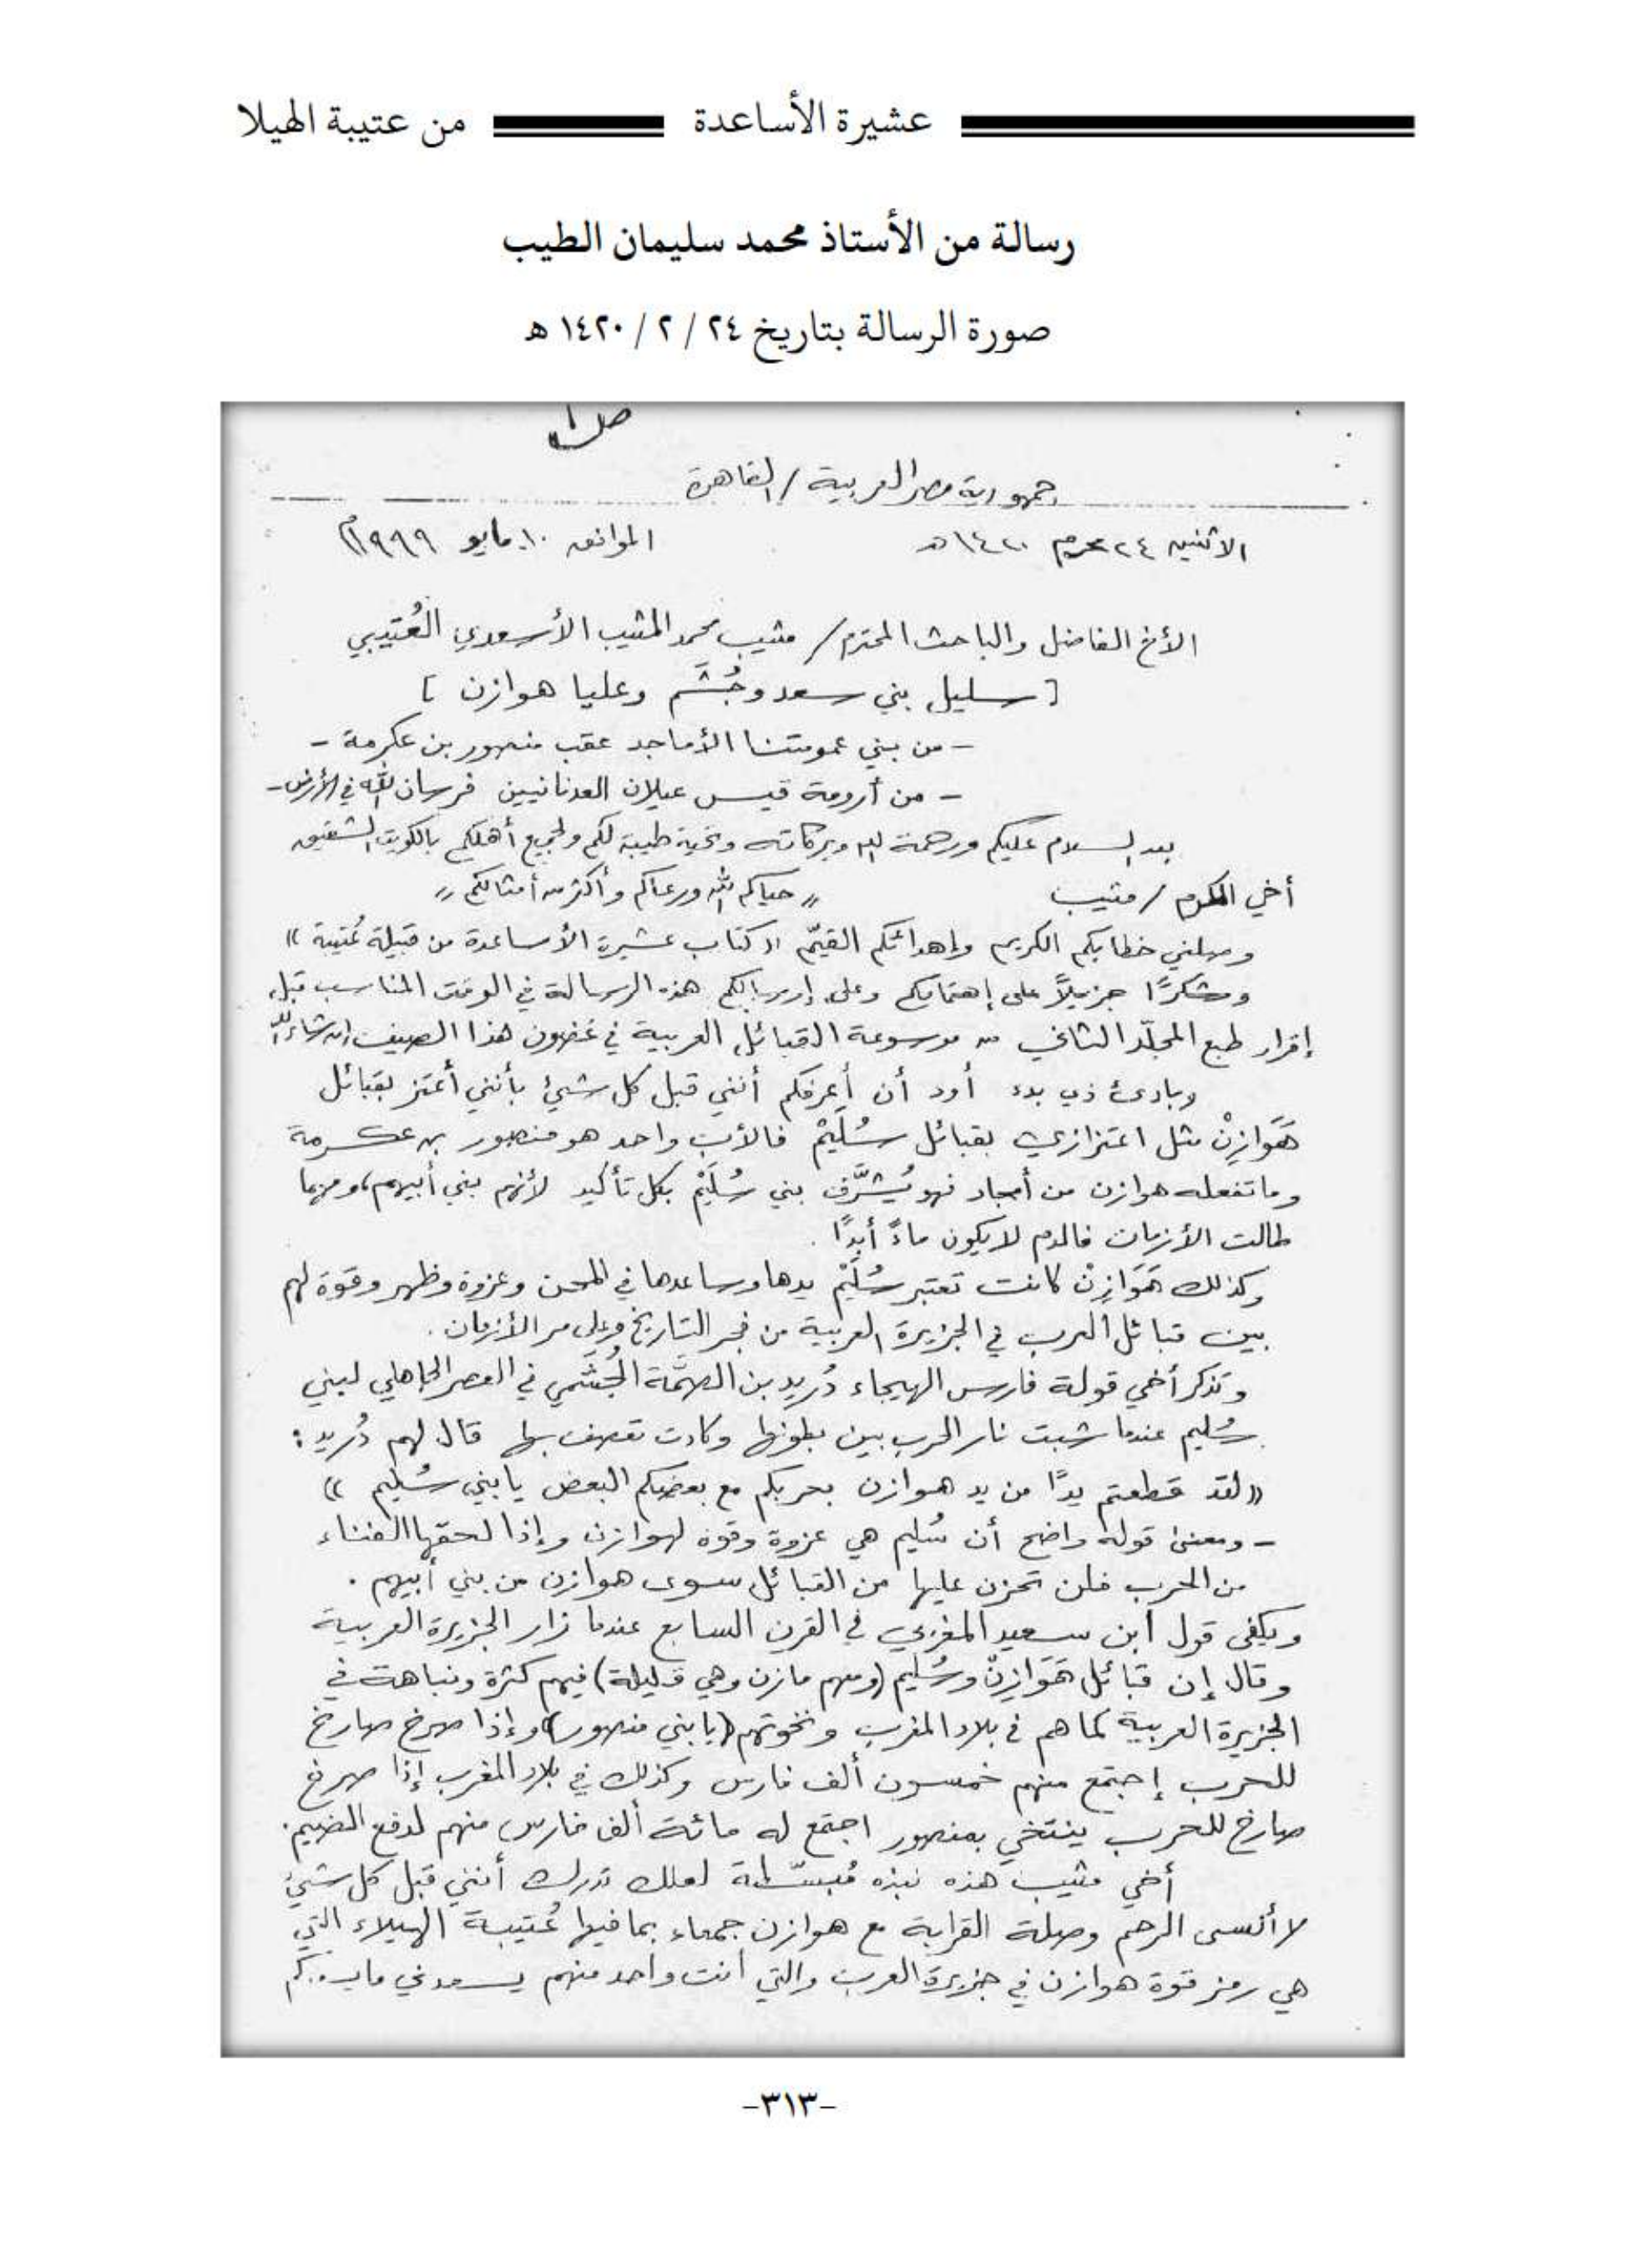 عشيرة الأساعدة من عتيبة الهيلا
رسالة من الأستاذ محمد سليمان الطيب
صورة الرسالة بتاريخ ٢٤ / ٢ / ١٤٢٠ هـ
ص١
جمهورية مصر العربية / القاهرة
الاثنين ٢٤ محرم ١٤٢٠هـ الموافق ١٠ مايو ١٩٩٩م
الأخ الفاضل والباحث المحترم / مثيب محمد المثيب الأسعدي العُتيبي
[ سليل بني سعد وجُشَم وعليا هوازن ]
- من بني عمومتنا الأماجد عقب منصور بن عكرمة -
- من أرومة قيس عيلان العدنانيين فرسان الله في الأرض -
بعد السلام عليكم ورحمة الله وبركاته وتحية طيبة لكم ولجميع أهلكم بالكويت الشقيق
أخي المكرم / مثيب " حياكم الله ورعاكم وأكثر من أمثالكم "
وصلني خطابكم الكريم وإهدائكم القيّم (( كتاب عشيرة الأساعدة من قبيلة عُتيبة ))
وشكرًا جزيلاً على إهتمامكم وعلى إرسالكم هذه الرسالة في الوقت المناسب قبل
إقرار طبع المجلّد الثاني من موسوعة القبائل العربية في غضون هذا الصيف إن شاء الله
وبادئ ذي بدء أود أن أعرفكم أنني قبل كل شيئ بأنني أعتز بقبائل
هَوازِنْ مثل اعتزازي بقبائل سُلَيْم فالأب واحد هو منصور بن عكرمة
وما تفعله هوازن من أمجاد فهو يُشرَّف بني سُلَيْم بكل تأكيد لأنهم بني أبيهم، ومهما
طالت الأزمان فالدم لا يكون ماءً أبدًا .
وكذلك هَوَازِنْ كانت تعتبر سُلَيْم يدها وساعدها في المحن وعزوة وظهر وقوة لهم
بين قبائل العرب في الجزيرة العربية من فجر التاريخ وعلى مر الأزمان .
وتذكر أخي قولة فارس الهيجاء دُريد بن الصمَّة الجُشَمي في العصر الجاهلي لبني
سُليم عندما شبت نار الحرب بين بطونها وكادت تعصف بها قال لهم دُريد :
(( لقد قطعتم يدًا من يد هوازن بحربكم مع بعضكم البعض يا بني سُليم ))
- ومعنى قوله واضح أن سُليم هي عزوة وقوة لهوازن وإذا لحقها الفناء
من الحرب فلن تحزن عليها من القبائل سوى هوازن من بني أبيهم .
ويكفي قول ابن سعيد المغربي في القرن السابع عندما زار الجزيرة العربية
وقال إن قبائل هَوَازِنْ وسُليم (ومنهم مازن وهي قليلة) فيهم كثرة ونباهة في
الجزيرة العربية كما هم في بلاد المغرب ونخوتهم (يا بني منصور) وإذا صرخ صارخ
للحرب إجتمع منهم خمسون ألف فارس وكذلك في بلاد المغرب إذا صرخ
صارخ للحرب ينتخي بمنصور اجتمع له مائة ألف فارس منهم لدفع الضيم .
أخي مثيب هذه نبذه مُبسّطة لعلك تدرك أنني قبل كل شيئ
لا أنسى الرحم وصلة القرابة مع هوازن جمعاء بما فيها عُتيبة الهيلاء التي
هي رمز قوة هوازن في جزيرة العرب والتي أنت واحد منهم يسعدني ما
-٣١٣-